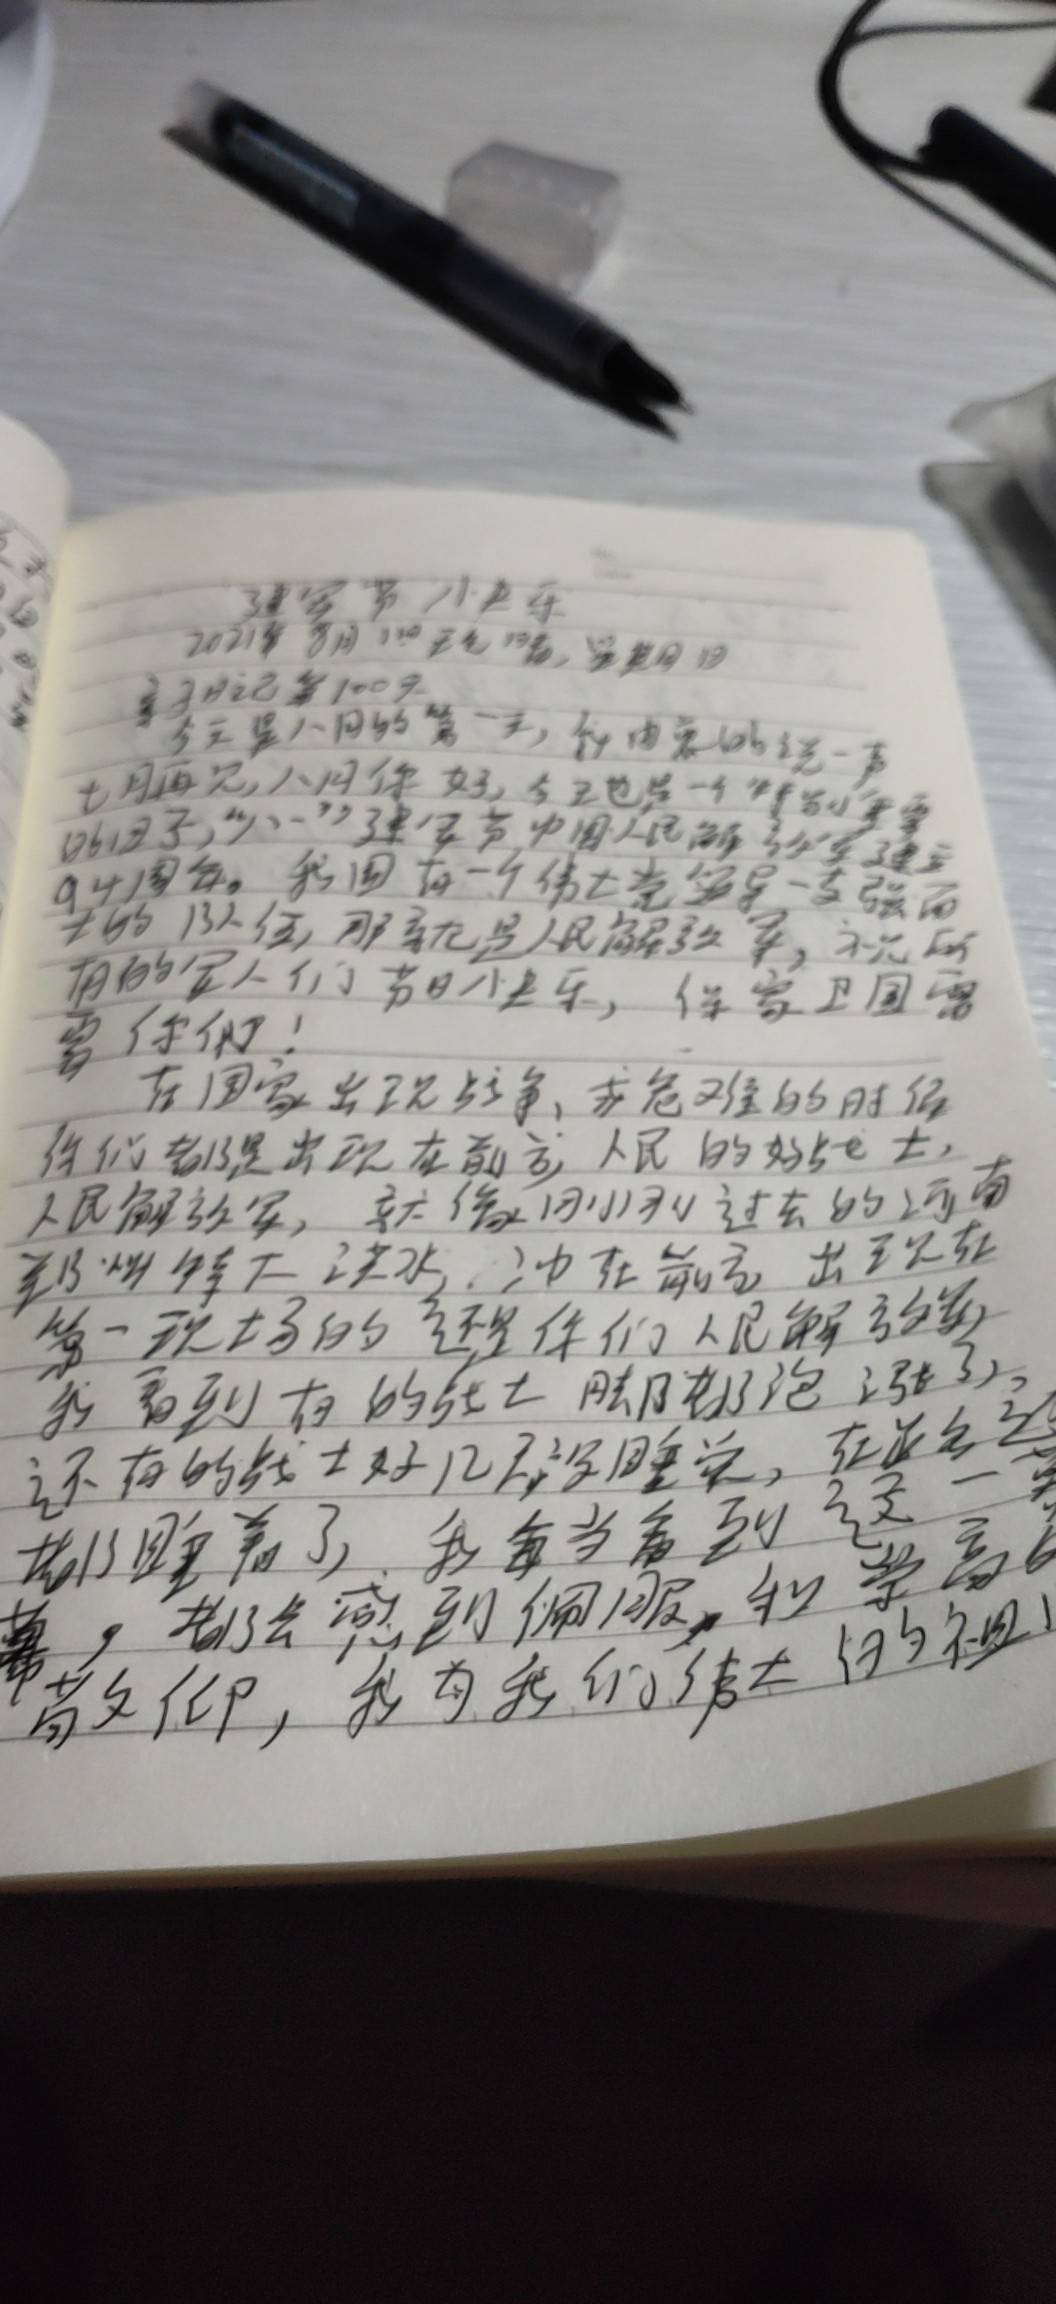 建军节快乐
2021年8月1日 天气 晴, 星期日
亲子日记第100天
今天是八月的第一天, 的说一声
七月再见, 八月你好, 今天也是一个特别重要
的日子, “八一”建军节中国人民解放军建立
94周年。我国有一个伟大党领导一支强而
大的队伍, 那就是人民解放军, 祝所
有的军人们节日快乐, 保家卫国需
要你们!
在国家出现战争、或危难的时候
你们都是出现在前方, 人民的好战士,
人民解放军, 就像刚刚过去的河南
郑州特大洪水, 冲在前方, 出现在
第一现场的还是你们人民解放军,
我看到有的战士脚都泡涨了,
还有的战士好几天没睡觉, 在
都睡着了, 我每当看到这一幕
幕, 都会感到佩服, 和崇高的
敬仰, 我为我们伟大的祖